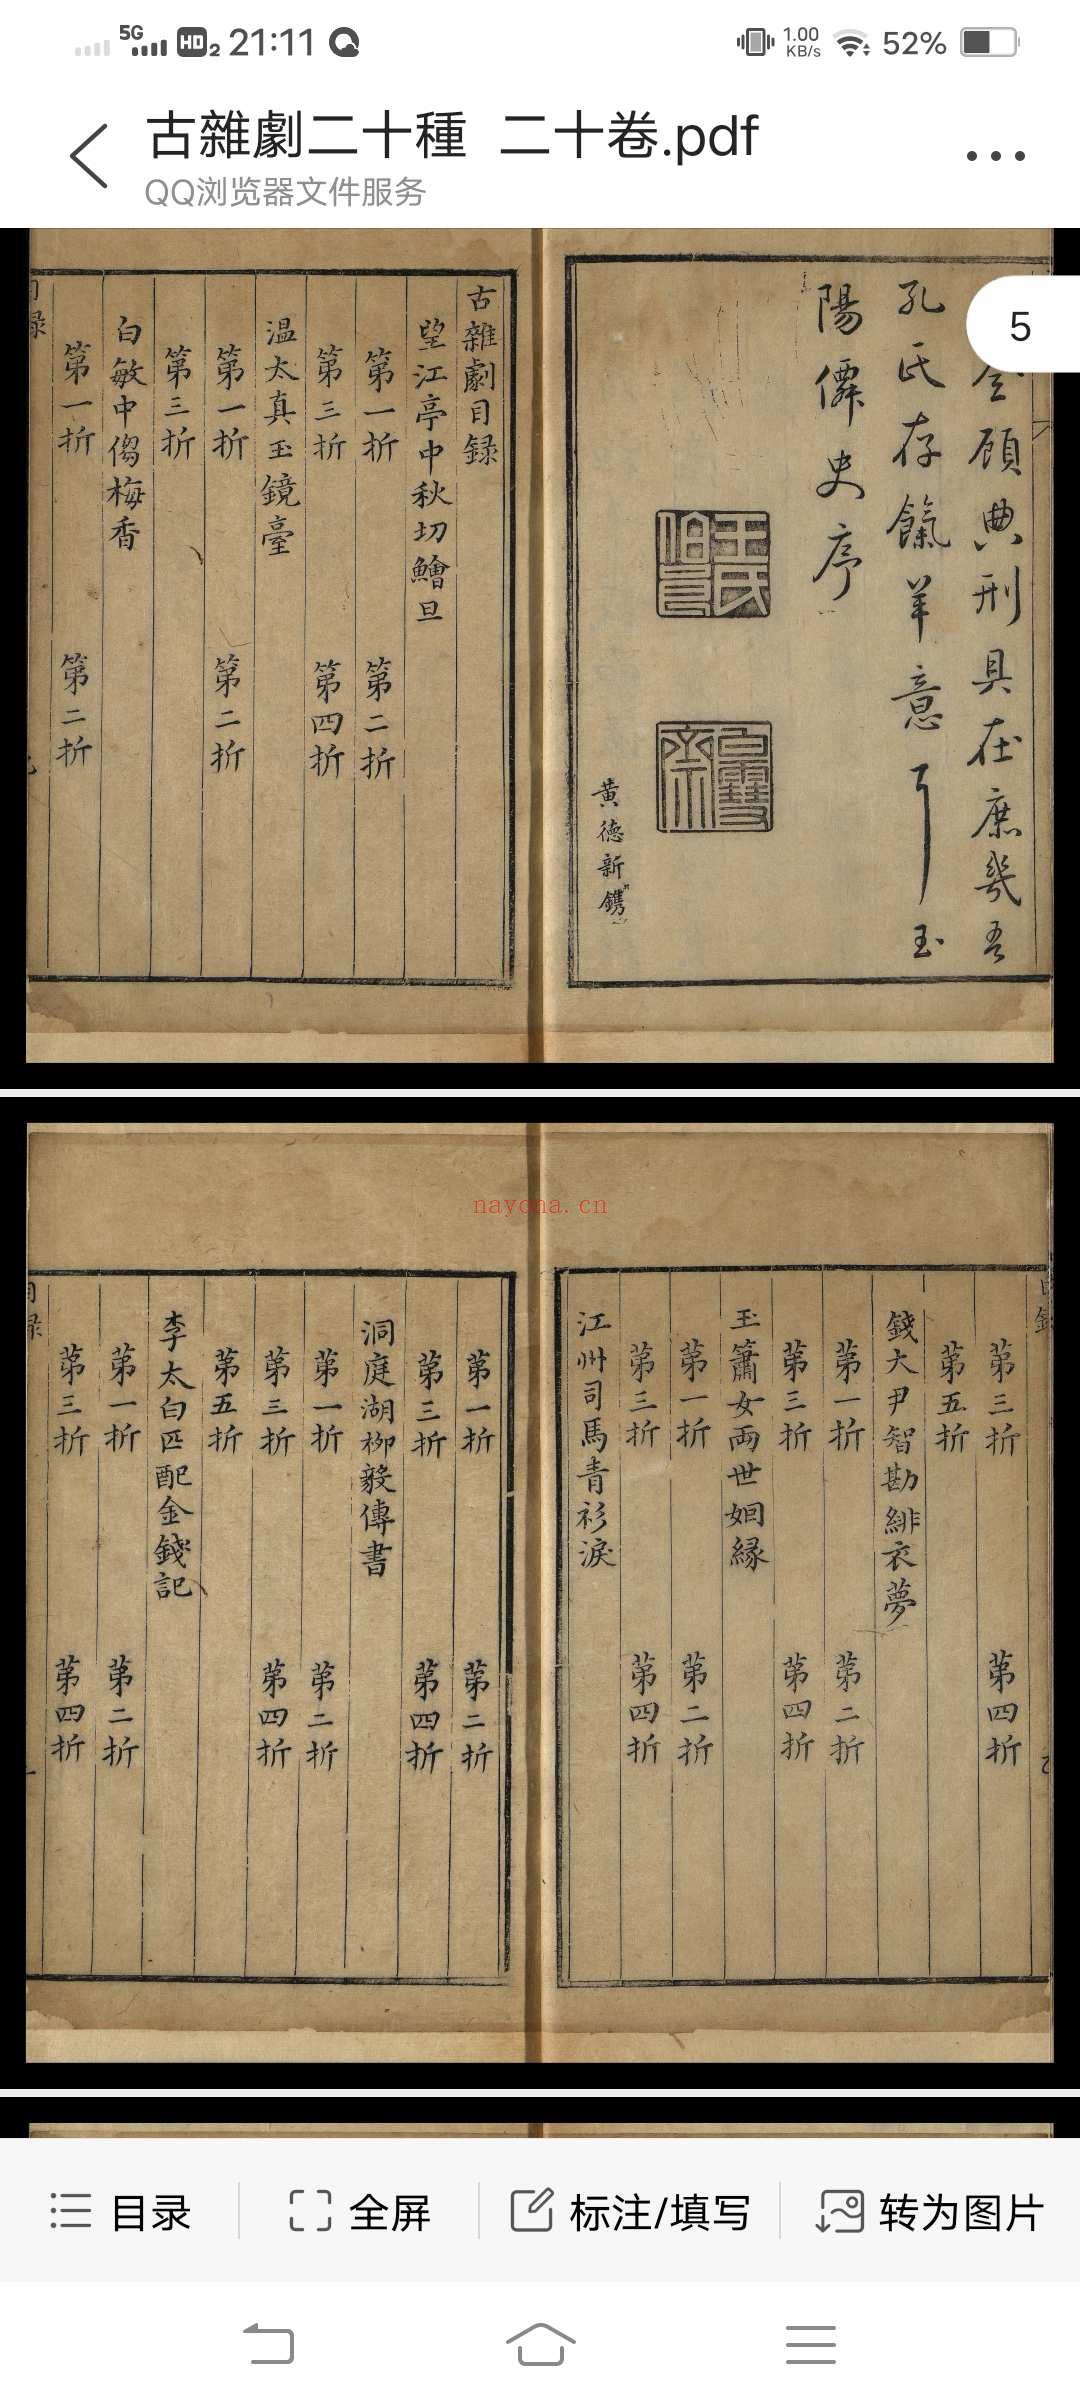 5G HD 2 21:11
1.00 KB/s 52%
古雜劇二十種 二十卷.pdf
QQ浏览器文件服务
5
顧典刑具在庶幾吾
孔氏存餼羊意耳玉
陽僊史序
王氏伯良
白雪齋
黄德新鐫
古雜劇目録
望江亭中秋切鱠旦
第一折 第二折
第三折 第四折
温太真玉鏡臺
第一折 第二折
第三折
白敏中㑳梅香
第一折 第二折
目録
nayona.cn
第三折 第四折
第五折
錢大尹智勘緋衣夢
第一折 第二折
第三折 第四折
玉簫女兩世姻縁
第一折 第二折
第三折 第四折
江州司馬青衫淚
第一折 第二折
第三折 第四折
洞庭湖栁毅傳書
第一折 第二折
第三折 第四折
第五折
李太白匹配金錢記
第一折 第二折
第三折 第四折
目録
目录
全屏
标注/填写
转为图片